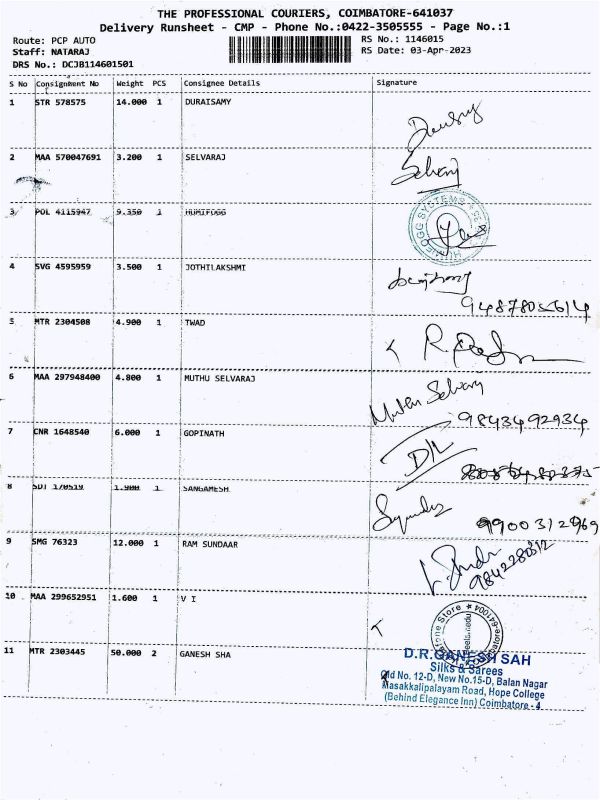 THE PROFESSIONAL COURIERS, COIMBATORE-641037
Delivery Runsheet - CMP - Phone No.:0422-3505555 - Page No.:1
Route: PCP AUTO
Staff: NATARAJ
DRS No.: DCJB114601501
RS No.: 1146015
RS Date: 03-Apr-2023
S No Consignment No Weight PCS Consignee Details Signature
1 STR 578575 14.000 1 DURAISAMY
2 MAA 570047691 3.200 1 SELVARAJ
Selvaraj
3 POL 4115947 9.350 1 HUMIFOGG
HUMIFOGG SYSTEMS
4 SVG 4595959 3.500 1 JOTHILAKSHMI
9487805614
5 MTR 2304508 4.900 1 TWAD
6 MAA 297948400 4.800 1 MUTHU SELVARAJ
Muthu Selvaraj
9843492934
7 CNR 1648540 6.000 1 GOPINATH
8 SDT 170519 1.900 1 SANGAMESH
9900312969
9 SMG 76323 12.000 1 RAM SUNDAAR
9842280312
10 MAA 299652951 1.600 1 V I
Store
Coimbatore-641004
11 MTR 2303445 50.000 2 GANESH SHA
D.R.GANESH SAH
Silks & Sarees
Old No. 12-D, New No.15-D, Balan Nagar
Masakkalipalayam Road, Hope College
(Behind Elegance Inn) Coimbatore - 4